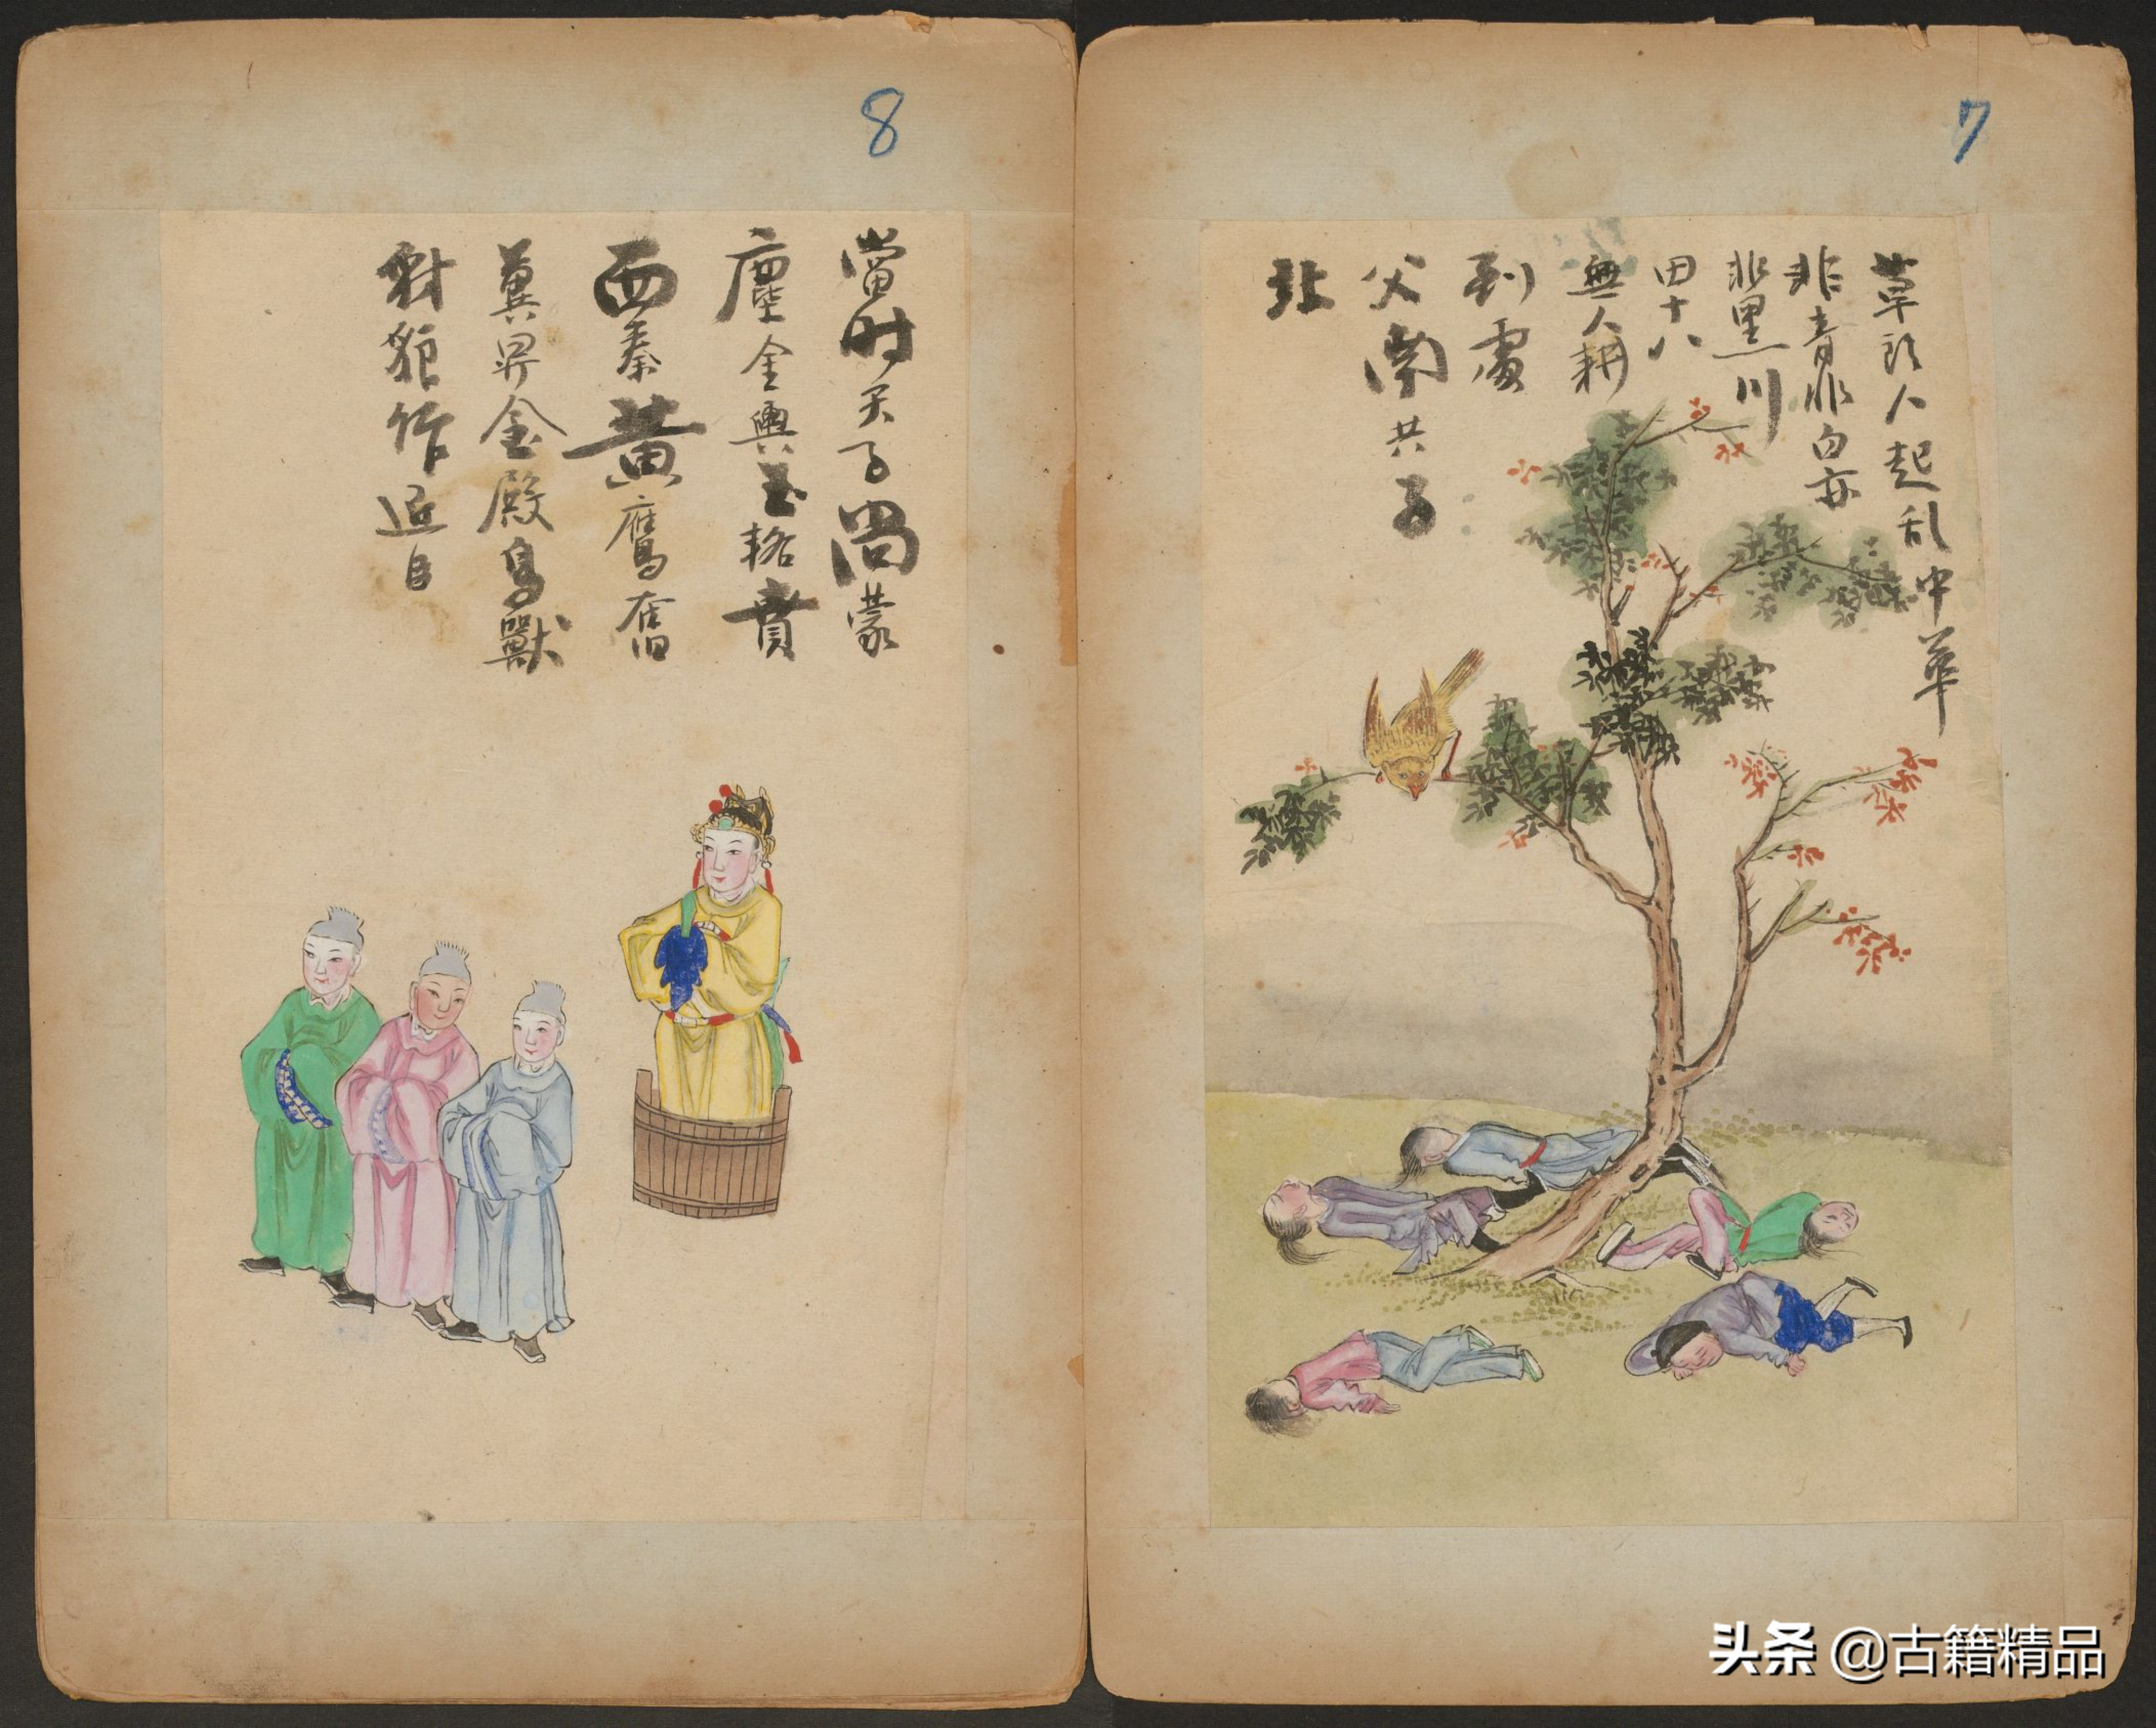 7
草頭人起乱中華
非青非白亦
非黑川
田十八
無人耕
到處
父南共子
北
8
當时天子尚蒙
塵金輿玉輅賁
西秦黄鷹奮
翼昇金殿鳥獸
豺貌作近自
头条 @古籍精品